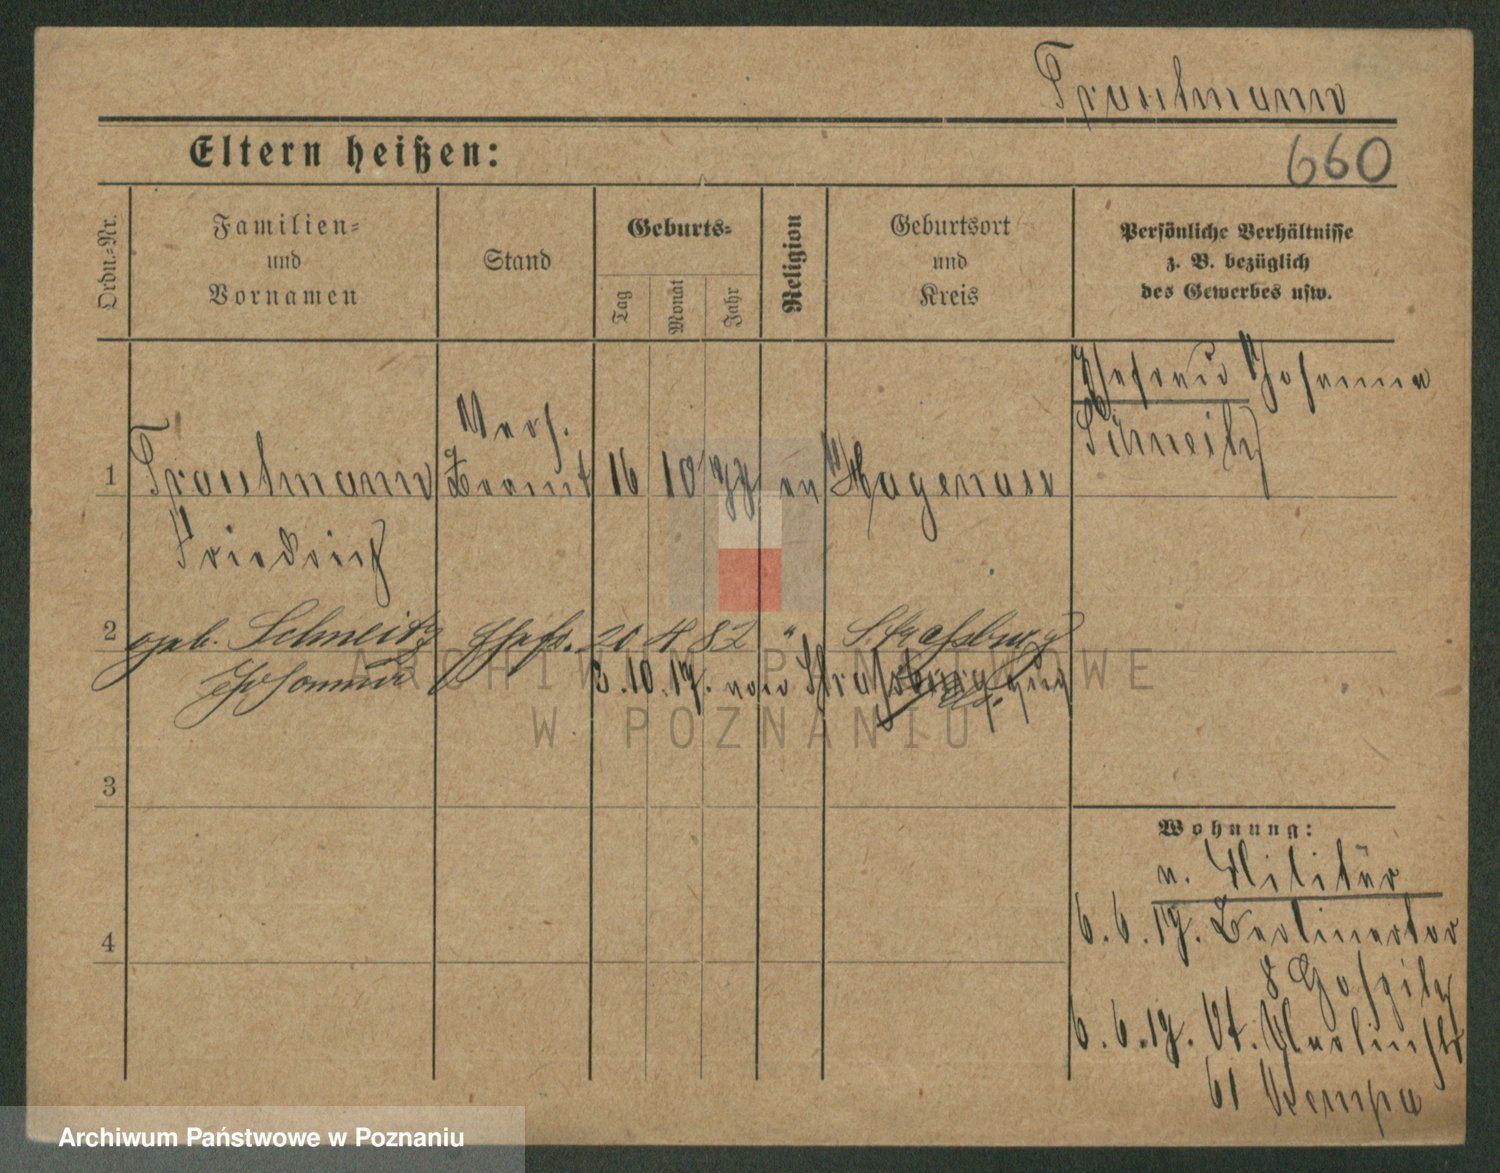 Trautmann
Eltern heißen:
660
Ordn.-Nr.
Familien-
und
Vornamen
Stand
Geburts-
Tag
Monat
Jahr
Religion
Geburtsort
und
Kreis
Persönliche Verhältnisse
z. B. bezüglich
des Gewerbes usw.
Ehefrau Johanna
Schneitz
1 Trautmann
Friedrich
16 10 77 ev Hagenau
2 geb. Schneitz
Johanna
20 4 82 " Strassburg
5.10.17. nach Straßburg
3
4
Wohnung:
n. Militär
6.6.17. Berlinertor
8
6.6.17. St.
61
ARCHIWUM PAŃSTWOWE
W POZNANIU
Archiwum Państwowe w Poznaniu